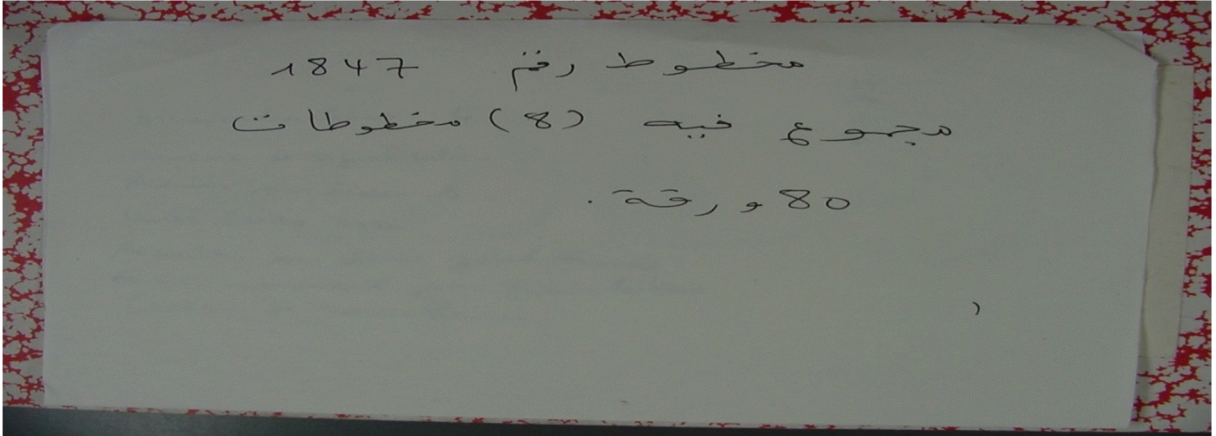 مخطوط رقم 1847
مجموع فيه (8) مخطوطات
80 ورقة.